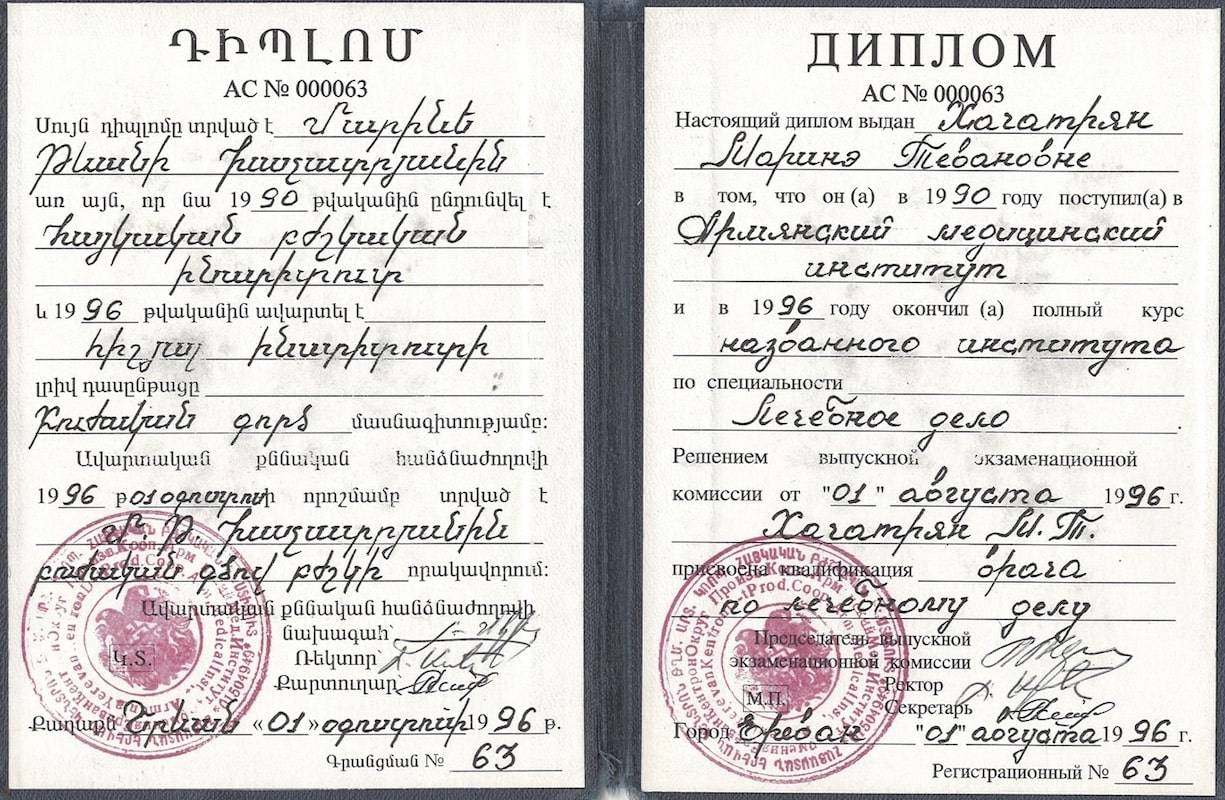 ԴԻՊԼՈՄ
АС № 000063
Սույն դիպլոմը տրված է Մարինե
Թևանի Խաչատրյանին
առ այն, որ նա 1990 թվականին ընդունվել է
Հայկական բժշկական
ինստիտուտ
և 1996 թվականին ավարտել է
հիշյալ ինստիտուտի
լրիվ դասընթացը
Բուժական գործ մասնագիտությամբ:
Ավարտական քննական հանձնաժողովի
1996 թ 01 օգոստոսի որոշմամբ տրված է
Մ. Թ. Խաչատրյանին
բուժական գծով բժշկի որակավորում:
Ավարտական քննական հանձնաժողովի
նախագահ՝
Ռեկտոր՝
Քարտուղար՝
Կ.Տ.
Քաղաքն Երևան «01» օգոստոսի 1996 թ.
Գրանցման № 63
ДИПЛОМ
АС № 000063
Настоящий диплом выдан Хачатрян
Маринэ Тевановне
в том, что он (а) в 1990 году поступил(а) в
Армянский медицинский
институт
и в 1996 году окончил (а) полный курс
названного института
по специальности
Лечебное дело.
Решением выпускной экзаменационной
комиссии от "01" августа 1996 г.
Хачатрян М. Т.
присвоена квалификация врача
по лечебному делу
Председатель выпускной
экзаменационной комиссии
Ректор
Секретарь
М.П.
Город Ереван "01" августа 1996 г.
Регистрационный № 63